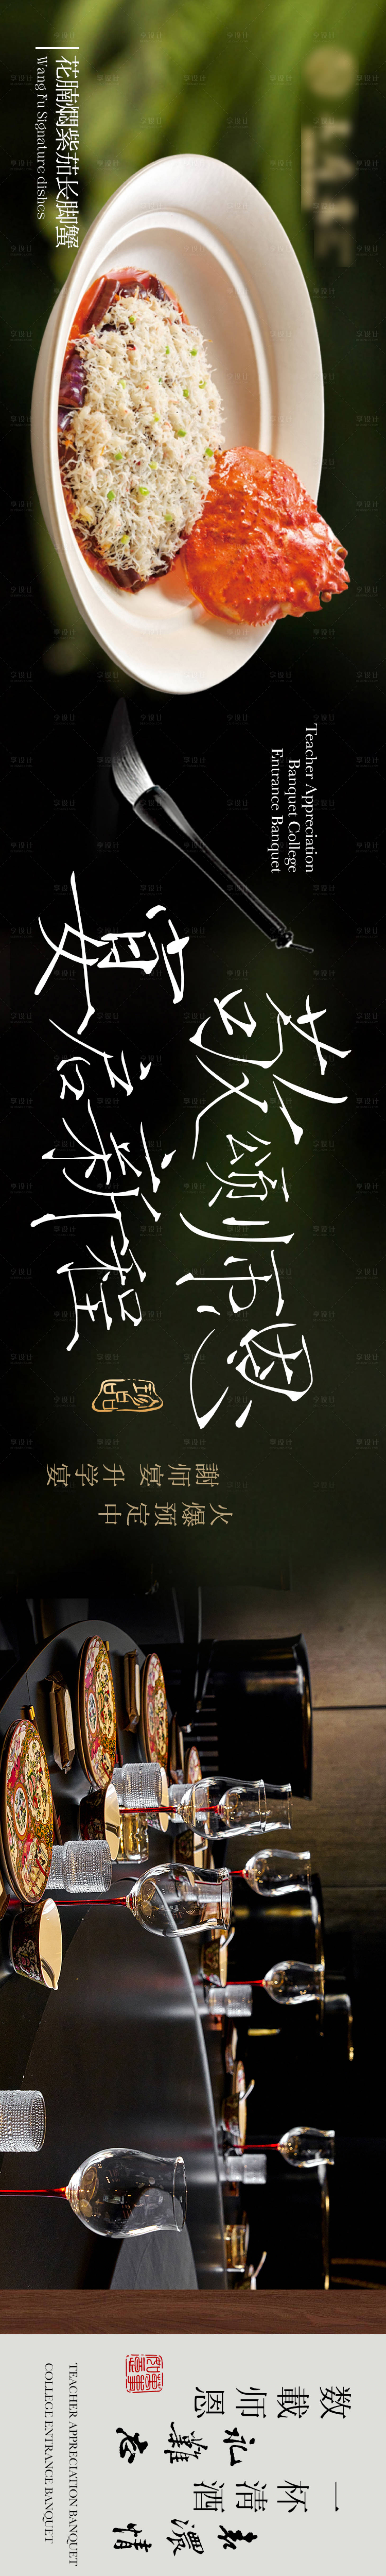 花腩焖紫茄长脚蟹
Wang Fu Signature dishes
Teacher Appreciation
Banquet College
Entrance Banquet
敬颂师恩
宴启新程
謝师宴 升学宴
火爆预定中
数載师恩
礼難忘
一杯清酒
濃情
TEACHER APPRECIATION BANQUET
COLLEGE ENTRANCE BANQUET